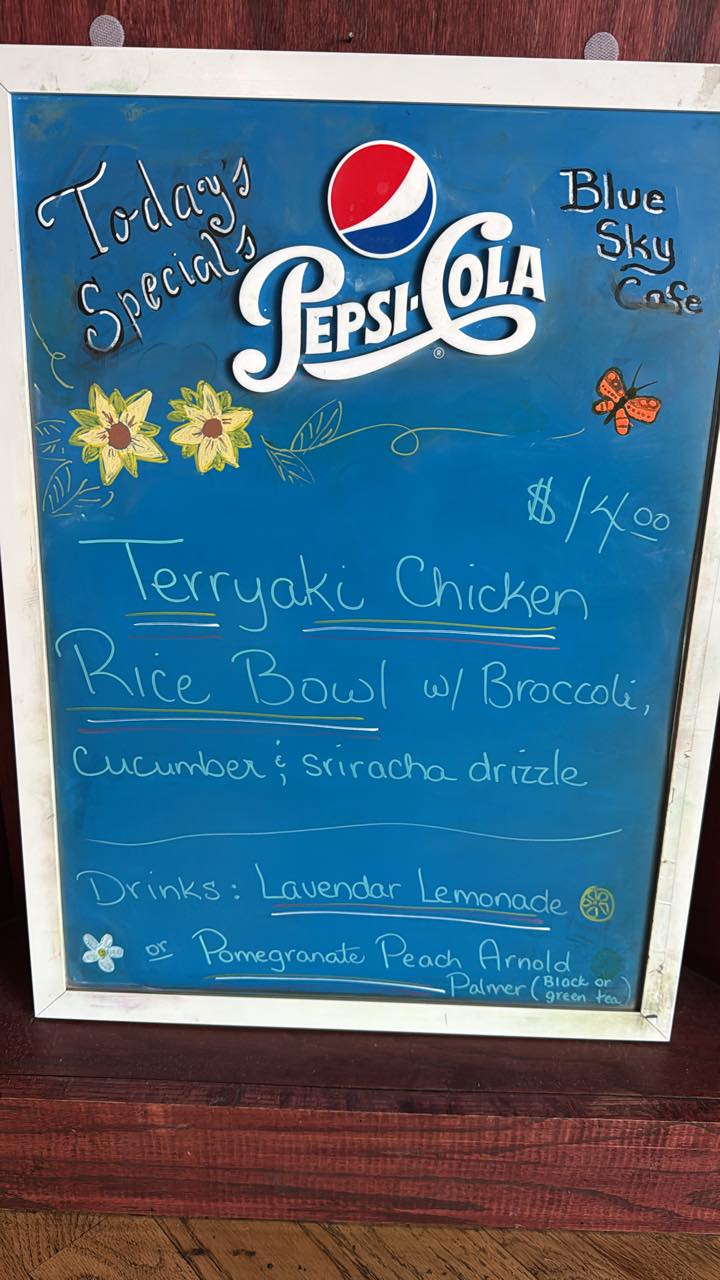 Today's
Specials
PEPSI-COLA
®
Blue
Sky
Cafe
$14.00
Terryaki Chicken
Rice Bowl w/ Broccoli,
cucumber & sriracha drizzle
Drinks: Lavendar Lemonade
or Pomegranate Peach Arnold
Palmer (Black or
green tea)